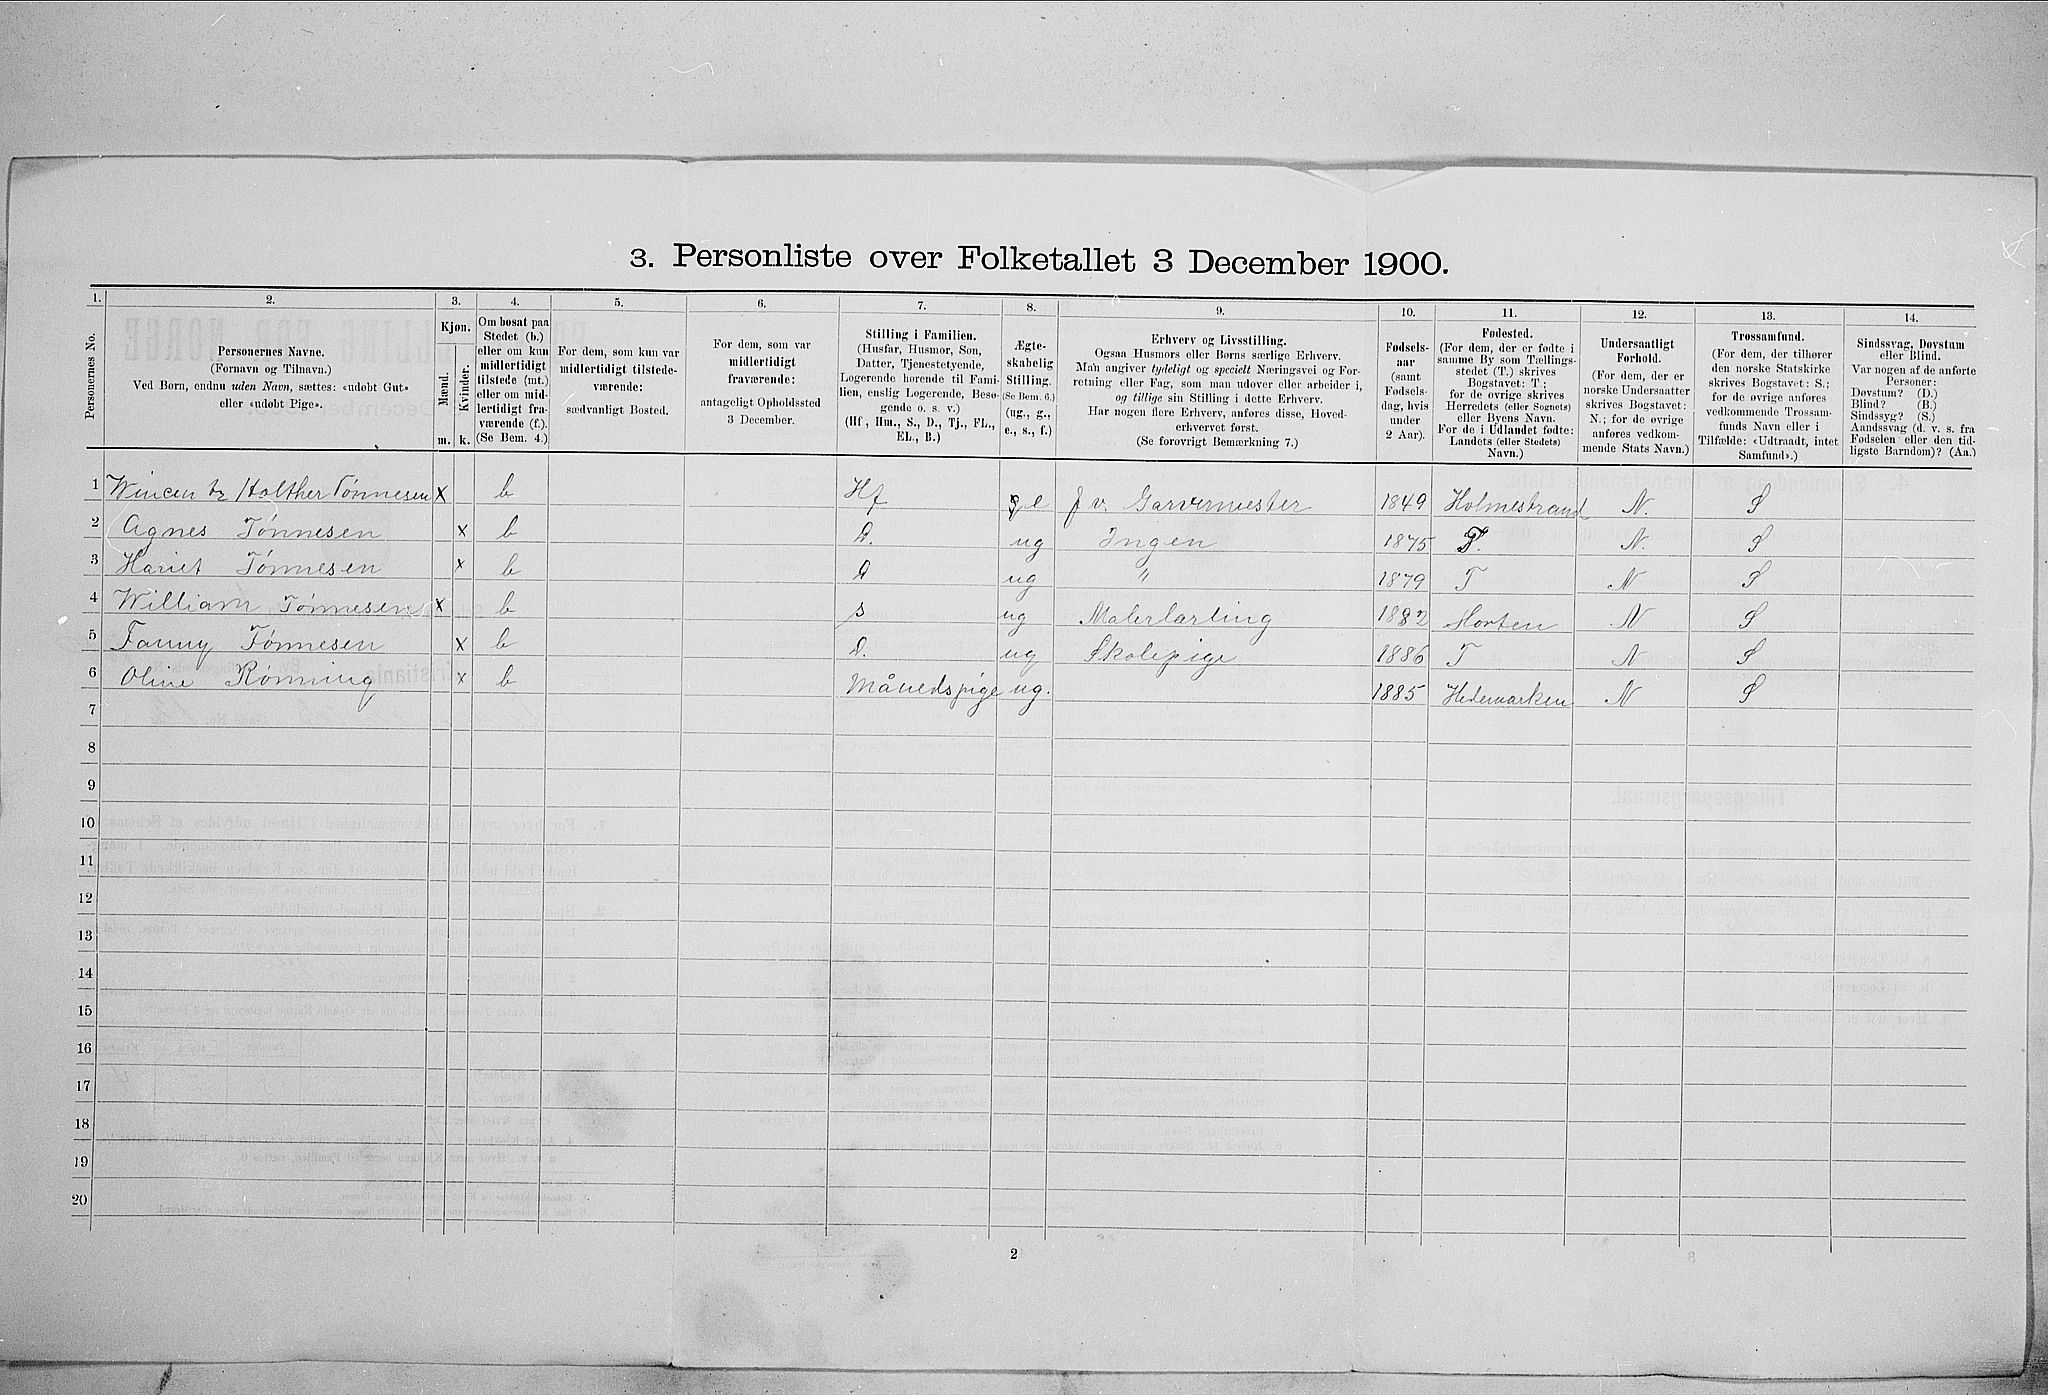 3. Personliste over Folketallet 3 December 1900.
1. 2. 3. 4. 5. 6. 7. 8. 9. 10. 11. 12. 13. 14.
Personernes No.
Personernes Navne.
(Fornavn og Tilnavn.)
Ved Børn, endnu uden Navn, sættes: «udøbt Gut»
eller «udøbt Pige».
Kjøn.
Mænd.
Kvinder.
m. k.
Om bosat paa
Stedet (b.)
eller om kun
midlertidigt
tilstede (mt.)
eller om mid-
lertidigt fra-
værende (f.).
(Se Bem. 4.)
For dem, som kun var
midlertidigt tilstede-
værende:
sædvanligt Bosted.
For dem, som var
midlertidigt
fraværende:
antageligt Opholdssted
3 December.
Stilling i Familien.
(Husfar, Husmor, Søn,
Datter, Tjenestetyende,
Logerende hørende til Fami-
lien, enslig Logerende, Besø-
gende o. s. v.)
(Hf, Hm., S., D., Tj., FL.,
EL., B.)
Ægte-
skabelig
Stilling.
(Se Bem. 6.)
(ug., g.,
e., s., f.)
Erhverv og Livsstilling.
Ogsaa Husmors eller Børns særlige Erhverv.
Man angiver tydeligt og specielt Næringsvei og For-
retning eller Fag, som man udøver eller arbeider i,
og tillige sin Stilling i dette Erhverv.
Har nogen flere Erhverv, anføres disse, Hoved-
erhvervet først.
(Se forøvrigt Bemærkning 7.)
Fødsels-
aar
(samt
Fødsels-
dag, hvis
under
2 Aar).
Fødested.
(For dem, der er fødte i
samme By som Tællings-
stedet (T.) skrives
Bogstavet: T;
for de øvrige skrives
Herredets (eller Sognets)
eller Byens Navn.
For de i Udlandet fødte:
Landets (eller Stedets)
Navn.)
Undersaatligt
Forhold.
(For dem, der er
norske Undersaatter
skrives Bogstavet:
N.; for de øvrige
anføres vedkom-
mende Stats Navn.)
Trossamfund.
(For dem, der tilhører
den norske Statskirke
skrives Bogstavet: S.;
for de øvrige anføres
vedkommende Trossam-
funds Navn eller i
Tilfælde: «Udtraadt, intet
Samfund».)
Sindssvag, Døvstum
eller Blind.
Var nogen af de anførte
Personer:
Døvstum? (D.)
Blind? (B.)
Sindssyg? (S.)
Aandssvag (d. v. s. fra
Fødselen eller den tid-
ligste Barndom)? (Aa.)
1 Holther Tønnesen x b Hf e Garvermester 1849 Holmestrand N. S
2 Agnes Tønnesen x b D. ug Ingen 1875 T. N. S
3 Hariet Tønnesen x b D ug " 1879 T N S
4 William Tønnesen x b s ug Malerlærling 1882 Horten N S
5 Fanny Tønnesen x b D. ug Skolepige 1886 T N S
6 Oline Rønning x b Månedspige ug. 1885 Hedemarken N S
7
8
9
10
11
12
13
14
15
16
17
18
19
20
2